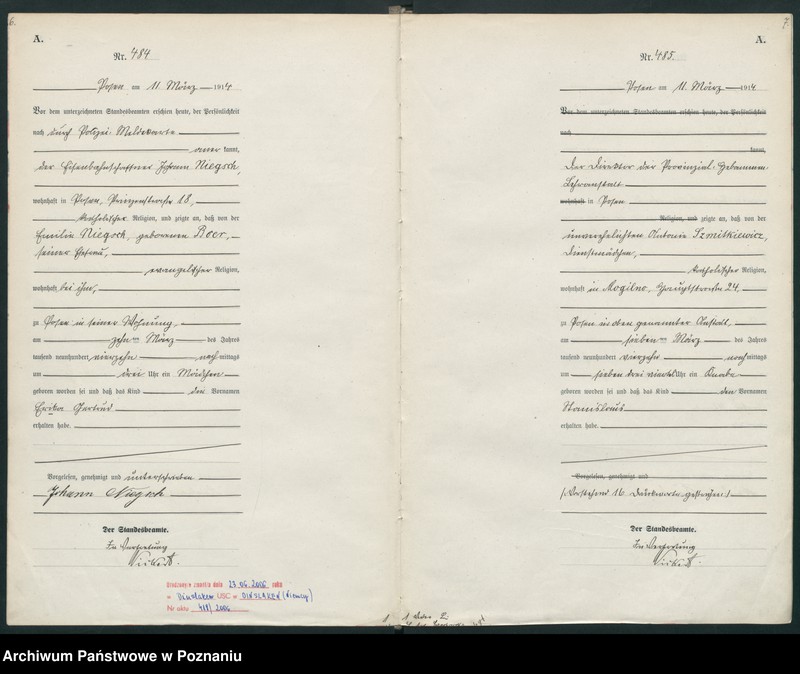 6.
A.
Nr. 484
Posen am 11. März 1914
Vor dem unterzeichneten Standesbeamten erschien heute, der Persönlichkeit
nach durch Polizei Meldekarte
kannt,
der Eisenbahnschaffner Johann Niegsch,
wohnhaft in Posen, Prinzenstraße 18,
katholischer Religion, und zeigte an, daß von der
Emilie Niegsch, geborenen Beer,
seiner Ehefrau,
evangelischer Religion,
wohnhaft bei ihm,
zu Posen in seiner Wohnung,
am zehn ten März des Jahres
tausend neunhundert vierzehn nach mittags
um drei Uhr ein Mädchen
geboren worden sei und daß das Kind den Vornamen
Erika Gertrud
erhalten habe.
Vorgelesen, genehmigt und unterschrieben
Johann Niegsch
Der Standesbeamte.
In Vertretung
Urodzony/a zmarł/a dnia 23.06.2006 roku
w Dinslaken USC w DINSLAKEN (Niemcy)
Nr aktu 418/2006
7.
A.
Nr. 485.
Posen am 11. März 1914
Vor dem unterzeichneten Standesbeamten erschien heute, der Persönlichkeit
nach
kannt,
Der Direktor der Provinzial-Hebammen-
Lehranstalt
wohnhaft in Posen
Religion, und zeigte an, daß von der
unverehelichten Antonie Szmitkiewicz,
Dienstmädchen,
katholischer Religion,
wohnhaft in Mogilno, Hauptstraße 24,
zu Posen in oben genannter Anstalt,
am sieben ten März des Jahres
tausend neunhundert vierzehn nach mittags
um sieben drei viertel Uhr ein Knabe
geboren worden sei und daß das Kind den Vornamen
Stanislaus
erhalten habe.
Vorgelesen, genehmigt und
(Vorstehend 16 Druckworte gestrichen.)
Der Standesbeamte.
In Vertretung
Archiwum Państwowe w Poznaniu